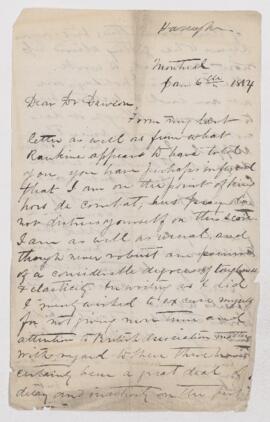 Montreal
Jan 6th 1884
Dear Dr Dawson,
From my last
letter as well as from what
Rankine appears to have told
you, you have perhaps inferred
that I am on the point of being
hors de combat, but pray do
not distress yourself on this score
I am as well as usual, and
though never robust am possessed
of a considerable degree of toughness
& elasticity. In writing as I did
I merely wished to excuse myself
for not giving more time and
attention to British Association matters
with regard to them there has
certainly been a great deal of
delay and inactivity on the part